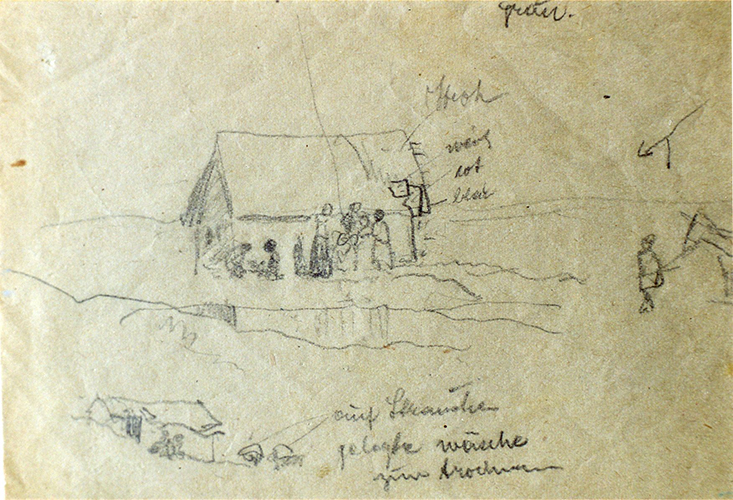 Stroh
weiß
rot
blau
auf Sträucher
gelegte Wäsche
zum trocknen